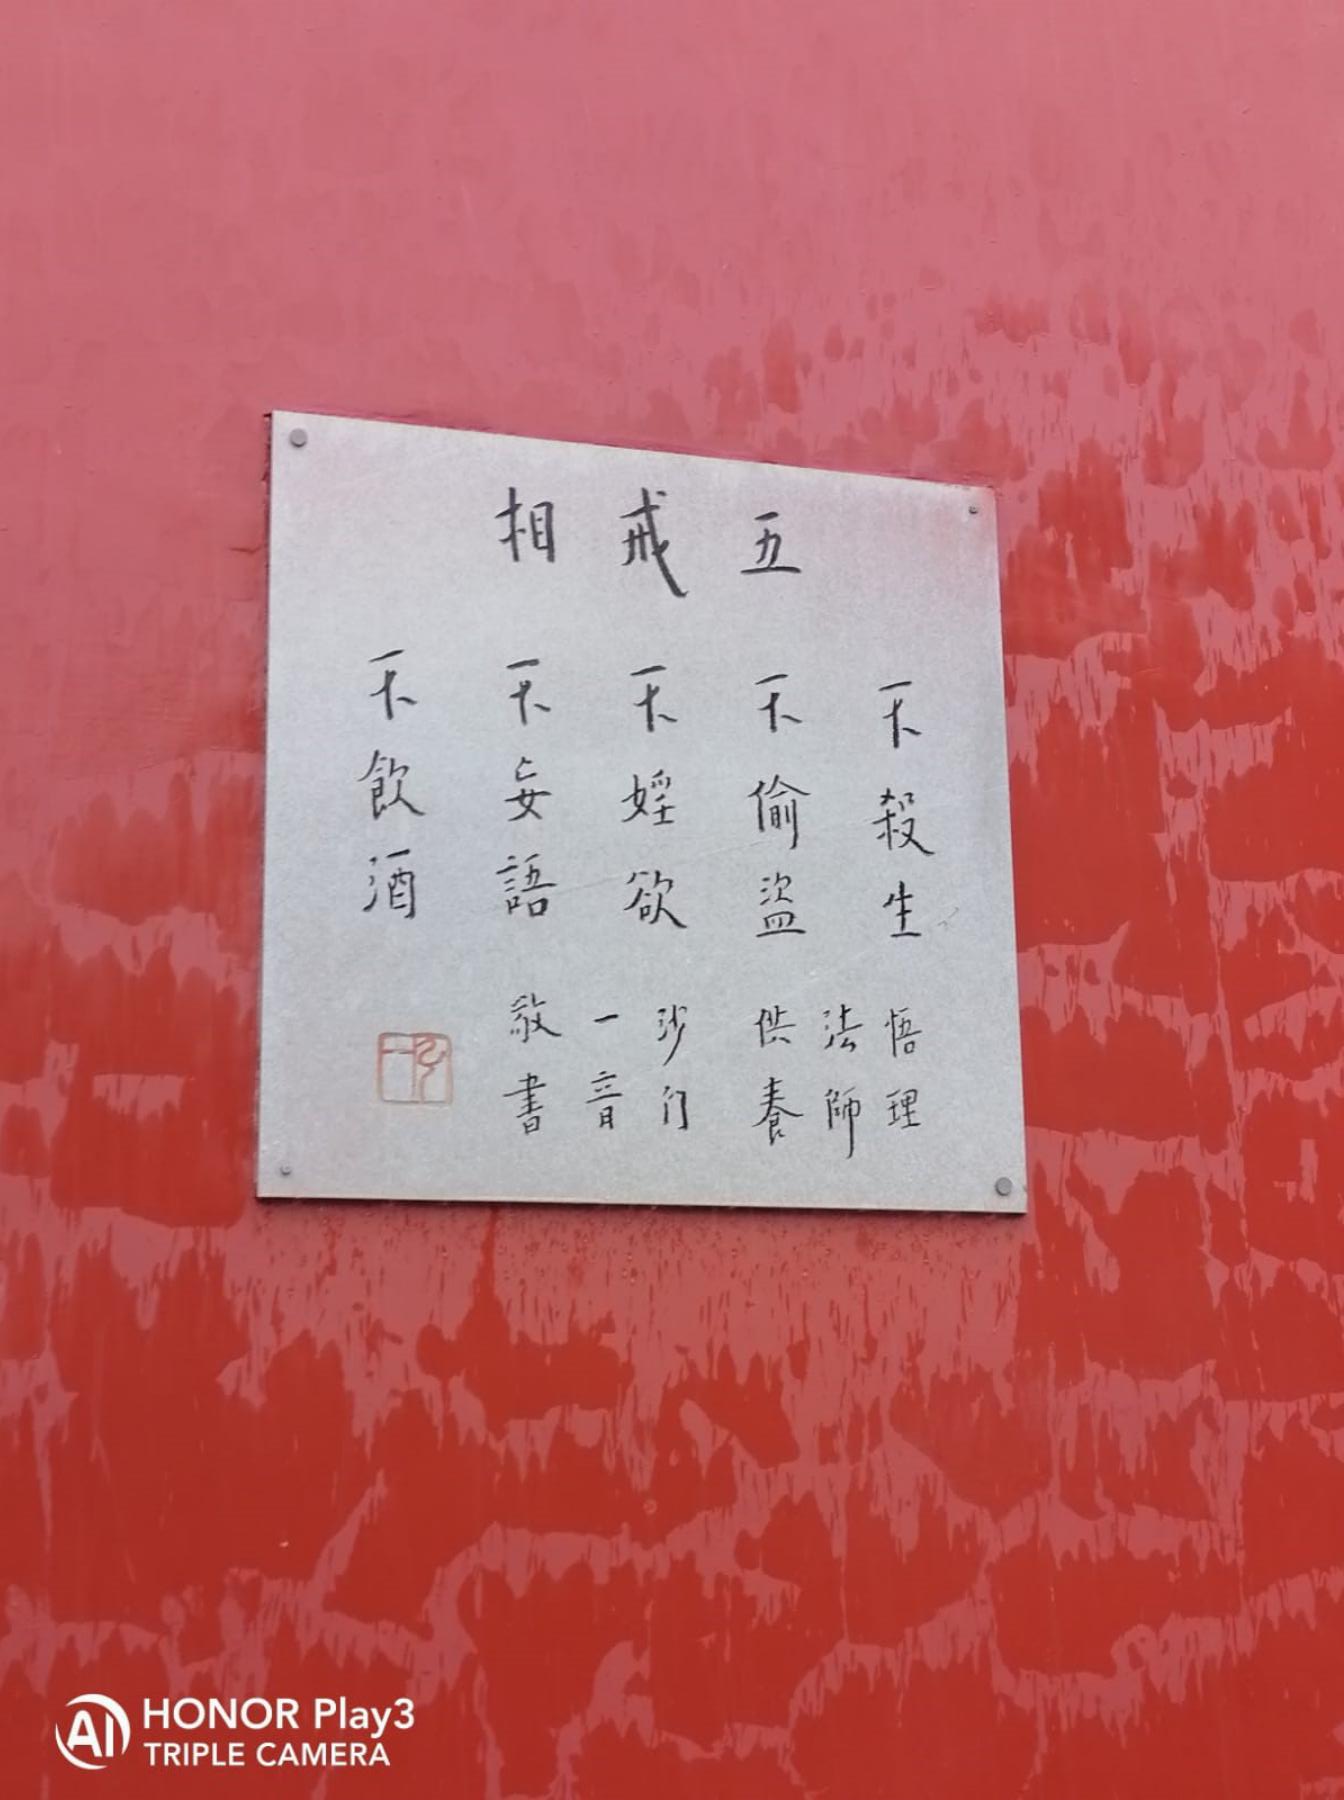 五戒相
不殺生
不偷盜
不婬欲
不妄語
不飲酒
悟理
法師
供養
沙门
一音
敬書
HONOR Play3
TRIPLE CAMERA